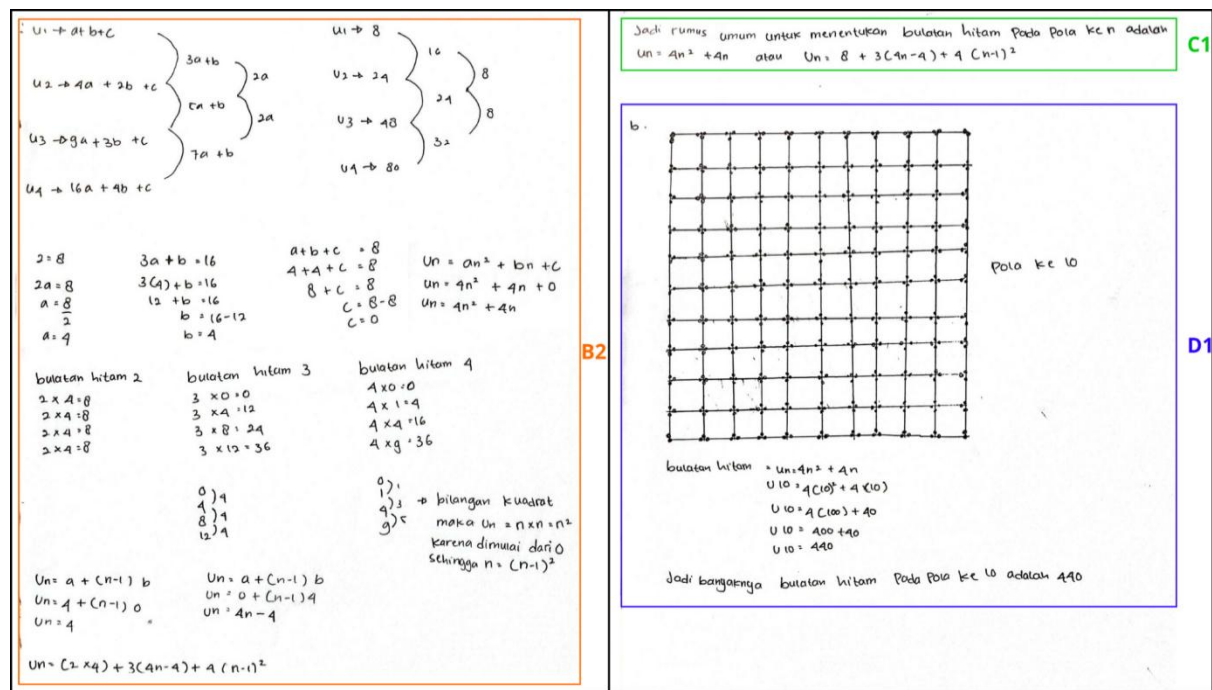 U1 → a+b+c
U2 → 4a + 2b + c
U3 → 9a + 3b + c
U4 → 16a + 4b + c
3a+b
5a+b
7a+b
2a
2a
U1 → 8
U2 → 24
U3 → 48
U4 → 80
16
24
32
8
8
2=8
2a=8
a=8/2
a=4
3a + b =16
3(4)+b=16
12 + b =16
b =16-12
b=4
a+b+c = 8
4+4+c = 8
8+c = 8
c= 8-8
c=0
Un = an² + bn + c
Un = 4n² + 4n + 0
Un= 4n² + 4n
B2
bulatan hitam 2
2 x 4=8
2 x 4=8
2 x 4=8
2 x 4=8
bulatan hitam 3
3 x0=0
3 x4=12
3 x 8=24
3 x12=36
bulatan hitam 4
4 x0=0
4 x 1=4
4 x4=16
4 x9=36
0)4
4)4
8)4
12
0)1
1)3
4)5
9
→ bilangan kuadrat
maka Un = n x n = n²
karena dimulai dari 0
sehingga n = (n-1)²
Un= a + (n-1) b
Un= 4 + (n-1) 0
Un= 4
Un= a + (n-1) b
Un = 0 + (n-1)4
Un = 4n-4
Un= (2 x4) + 3(4n-4) + 4 (n-1)²
Jadi rumus umum untuk menentukan bulatan hitam Pada Pola ke n adalah
Un= 4n² +4n atau Un= 8 + 3(4n-4) + 4 (n-1)²
C1
b.
Pola ke 10
D1
bulatan hitam = Un=4n² + 4n
U10 = 4(10)² + 4 x(10)
U10 = 4(100) + 40
U10 = 400 +40
U10 = 440
Jadi banyaknya bulatan hitam Pada Pola ke 10 adalah 440